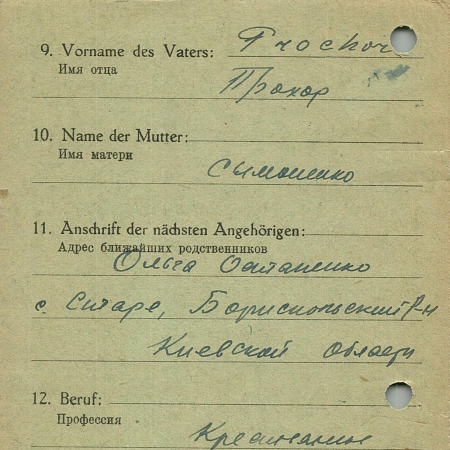 9. Vorname des Vaters: Prochor
Имя отца
Прохор
10. Name der Mutter:
Имя матери
Сымоненко
11. Anschrift der nächsten Angehörigen:
Адрес ближайших родственников
Ольга Остапенко
с. Старе, Бориспольский р-н
Киевской области
12. Beruf:
Профессия
Крестьянин